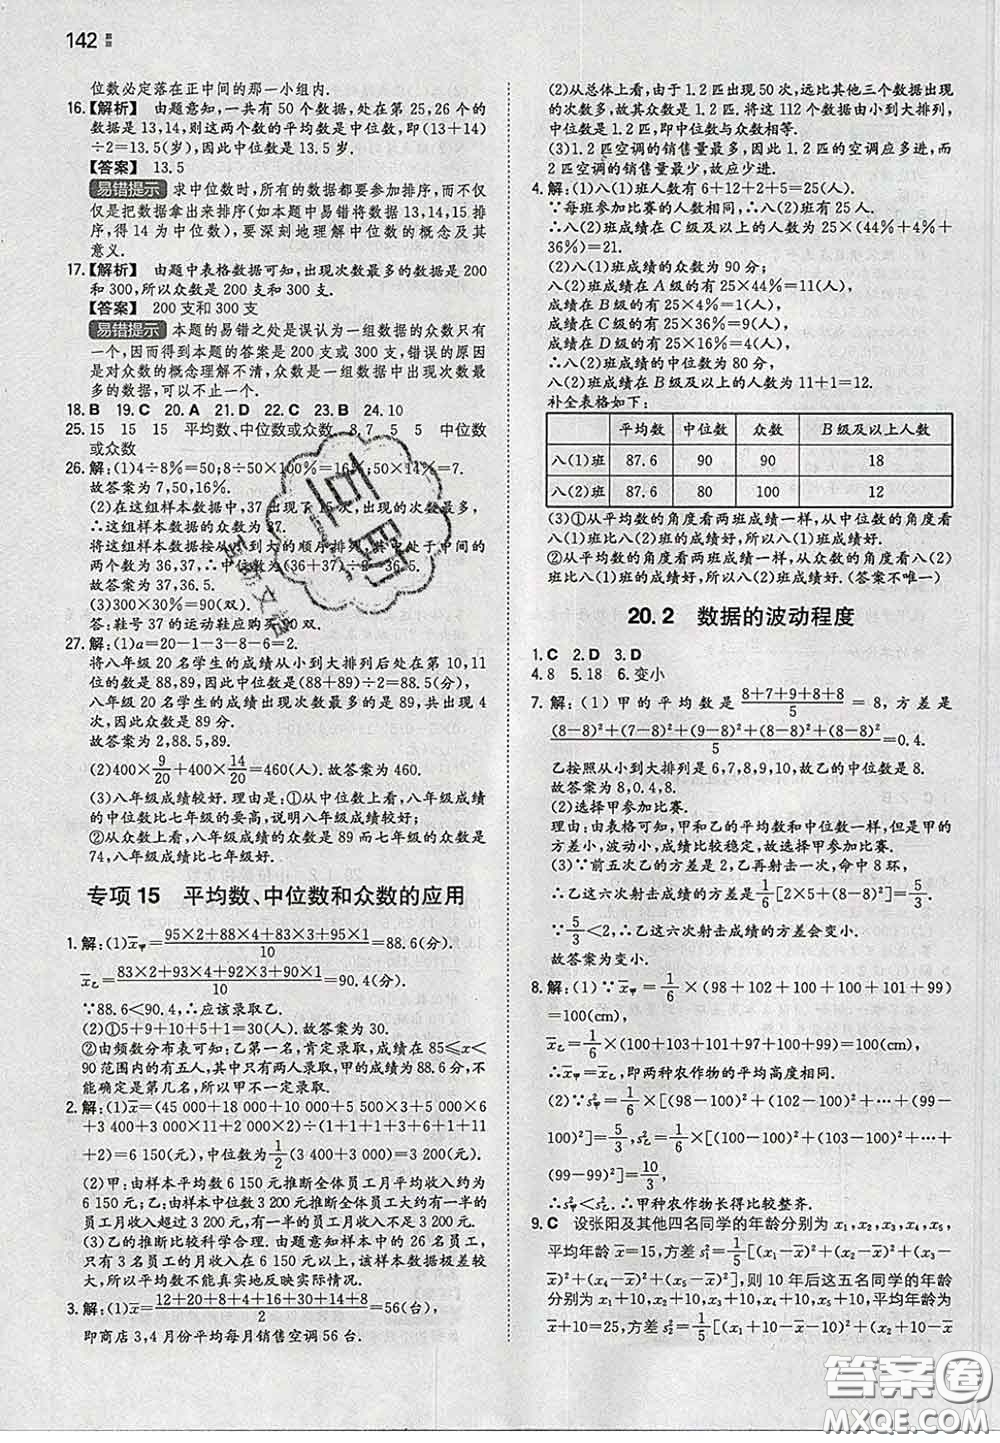 142
位数必定落在正中间的那一小组内.
16.【解析】 由题意知,一共有 50 个数据,处在第 25,26 个的
数据是 13,14,则这两个数的平均数是中位数,即(13+14)
÷2=13.5(岁),因此中位数是 13.5 岁.
【答案】 13.5
易错提示 求中位数时,所有的数据都要参加排序,而不仅
仅是把数据拿出来排序(如本题中易错将数据 13,14,15 排
序,得 14 为中位数),要深刻地理解中位数的概念及其
意义.
17.【解析】 由题中表格数据可知,出现次数最多的是 200
和 300,所以众数是 200 和 300.
【答案】 200 支和 300 支
易错提示 本题的易错之处是误认为一组数据的众数只有
一个,因而得到本题的答案是 200 支或 300 支,错误的原因
是对众数的概念理解不清,众数是一组数据中出现次数最
多的数据,可以不止一个.
18. B 19. C 20. A 21. D 22. C 23. B 24. 10
25. 15 15 15 平均数、中位数或众数 8.7 5 5 中位数
或众数
26. 解:(1)4÷8%=50;8÷50×100%=16%;50×14%=7.
故答案为 7,50,16%.
(2)在这组样本数据中,37 出现了 15 次,出现的次数最多,
∴这组样本数据的众数为 37.
将这组样本数据按从小到大的顺序排列,其中处于中间的
两个数为 36,37,∴中位数为(36+37)÷2=36.5.
故答案为 37,36.5.
(3)300×30%=90(双).
答:鞋号 37 的运动鞋应购买 90 双.
27. 解:(1)a=20-1-3-8-6=2.
将八年级 20 名学生的成绩从小到大排列后处在第 10,11
位的数是 88,89,因此中位数是(88+89)÷2=88.5(分),
八年级 20 名学生的成绩出现次数最多的是 89,共出现 4
次,因此众数是 89 分.
故答案为 2,88.5,89.
(2)400×9/20+400×14/20=460(人). 故答案为 460.
(3)八年级成绩较好. 理由是:①从中位数上看,八年级的中
位数比七年级的要高,说明八年级成绩好.
②从众数上看,八年级成绩的众数是 89 而七年级的众数是
74,八年级成绩比七年级好.
专项 15 平均数、中位数和众数的应用
1. 解:(1)x̄甲=(95×2+88×4+83×3+95×1)/10=88.6(分).
x̄乙=(83×2+93×4+92×3+90×1)/10=90.4(分).
∵88.6<90.4,∴应该录取乙.
(2)①5+9+10+5+1=30(人). 故答案为 30.
②由频数分布表可知:乙第一名,肯定录取,成绩在 85≤x<
90 范围内的有五人,其中只有两人录取,甲的成绩为 88.6 分,不
能确定是第几名,所以甲不一定录取.
2. 解:(1)x̄=(45 000+18 000+10 000+5 500×3+5 000×6
+3 400+3 000×11+2 000×2)÷(1+1+1+3+6+1+11
+2)=6 150(元),中位数为1/2(3 400+3 000)=3 200(元).
(2)甲:由样本平均数 6 150 元推断全体员工月平均收入约为
6 150 元;乙:由样本中位数 3 200 元推断全体员工大约有一半的
员工月收入超过 3 200 元,有一半的员工月收入不足 3 200 元.
(3)乙的推断比较科学合理. 由题意知样本中的 26 名员工,
只有 3 名员工的月收入在 6 150 元以上,该样本数据极差较
大,所以平均数不能真实地反映实际情况.
3. 解:(1)x̄=(12+20+8+4+16+30+14+8)/2=56(台),
即商店 3,4 月份平均每月销售空调 56 台.
(2)从总体上看,由于 1.2 匹出现 50 次,远比其他三个数据出现
的次数多,故其众数是 1.2 匹. 将这 112 个数据由小到大排列,
中位数是 1.2 匹,即中位数与众数相等.
(3)1.2 匹空调的销售量最多,所以 1.2 匹的空调应多进,而
2 匹空调的销售量最少,故应少进.
4. 解:(1)八(1)班人数有 6+12+2+5=25(人).
∵每班参加比赛的人数相同,∴八(2)班有 25 人.
∴八(2)班成绩在 C 级及以上的人数为 25×(44%+4%+
36%)=21.
(2)八(1)班成绩的众数为 90 分;
八(2)班成绩在 A 级的有 25×44%=11(人),
成绩在 B 级的有 25×4%=1(人),
成绩在 C 级的有 25×36%=9(人),
成绩在 D 级的有 25×16%=4(人),
∴八(2)班成绩的中位数为 80 分,
八(2)班成绩在 B 级及以上的人数为 11+1=12.
补全表格如下:
平均数 中位数 众数 B 级及以上人数
八(1)班 87.6 90 90 18
八(2)班 87.6 80 100 12
(3)①从平均数的角度看两班成绩一样,从中位数的角度看
八(1)班比八(2)班的成绩好,所以八(1)班成绩好.
②从平均数的角度看两班成绩一样,从众数的角度看八(2)
班比八(1)班的成绩好,所以八(2)班成绩好. (答案不唯一)
20.2 数据的波动程度
1. C 2. D 3. D
4. 8 5. 18 6. 变小
7. 解:(1)甲的平均数是(8+7+9+8+8)/5=8,方差是
((8-8)²+(7-8)²+(9-8)²+(8-8)²+(8-8)²)/5=0.4.
乙按照从小到大排列是 6,7,8,9,10,故乙的中位数是 8.
故答案为 8,0.4,8.
(2)选择甲参加比赛.
理由:由表格可知,甲和乙的平均数和中位数一样,但是甲的
方差小,波动小,成绩比较稳定,故选甲.
(3)∵前五次乙的方差是 2,最后一次射击,命中 8 环,
∴乙这六次射击成绩的方差是1/6[2×5+(8-8)²]=5/3.
∵5/3<2,∴乙这六次射击成绩的方差会变小.
故答案为变小.
8. 解:(1)∵x̄甲=1/6×(98+102+100+100+101+99)
=100(cm),
x̄乙=1/6×(100+103+101+97+100+99)=100(cm),
∴x̄甲=x̄乙,即两种农作物的平均高度相同.
(2)∵s²甲=1/6×[(98-100)²+(102-100)²+…+(99-
100)²]=5/3,s²乙=1/6×[(100-100)²+(103-100)²+…+
(99-99)²]=10/3,
∴s²甲<s²乙. ∴甲种农作物长得比较整齐.
9. C 设张阳及其他四名同学的年龄分别为 x₁,x₂,x₃,x₄,x₅,
平均年龄 x̄=15,方差 s₁²=1/5[(x₁-x̄)²+(x₂-x̄)²+(x₃-
x̄)²+(x₄-x̄)²+(x₅-x̄)²],则 10 年后这五名同学的年龄
分别为 x₁+10,x₂+10,x₃+10,x₄+10,x₅+10,平均年龄为
x̄+10=25,方差 s₂²=1/5[(x₁+10-x̄-10)²+(x₂+10-
答案圈
MXQE.COM